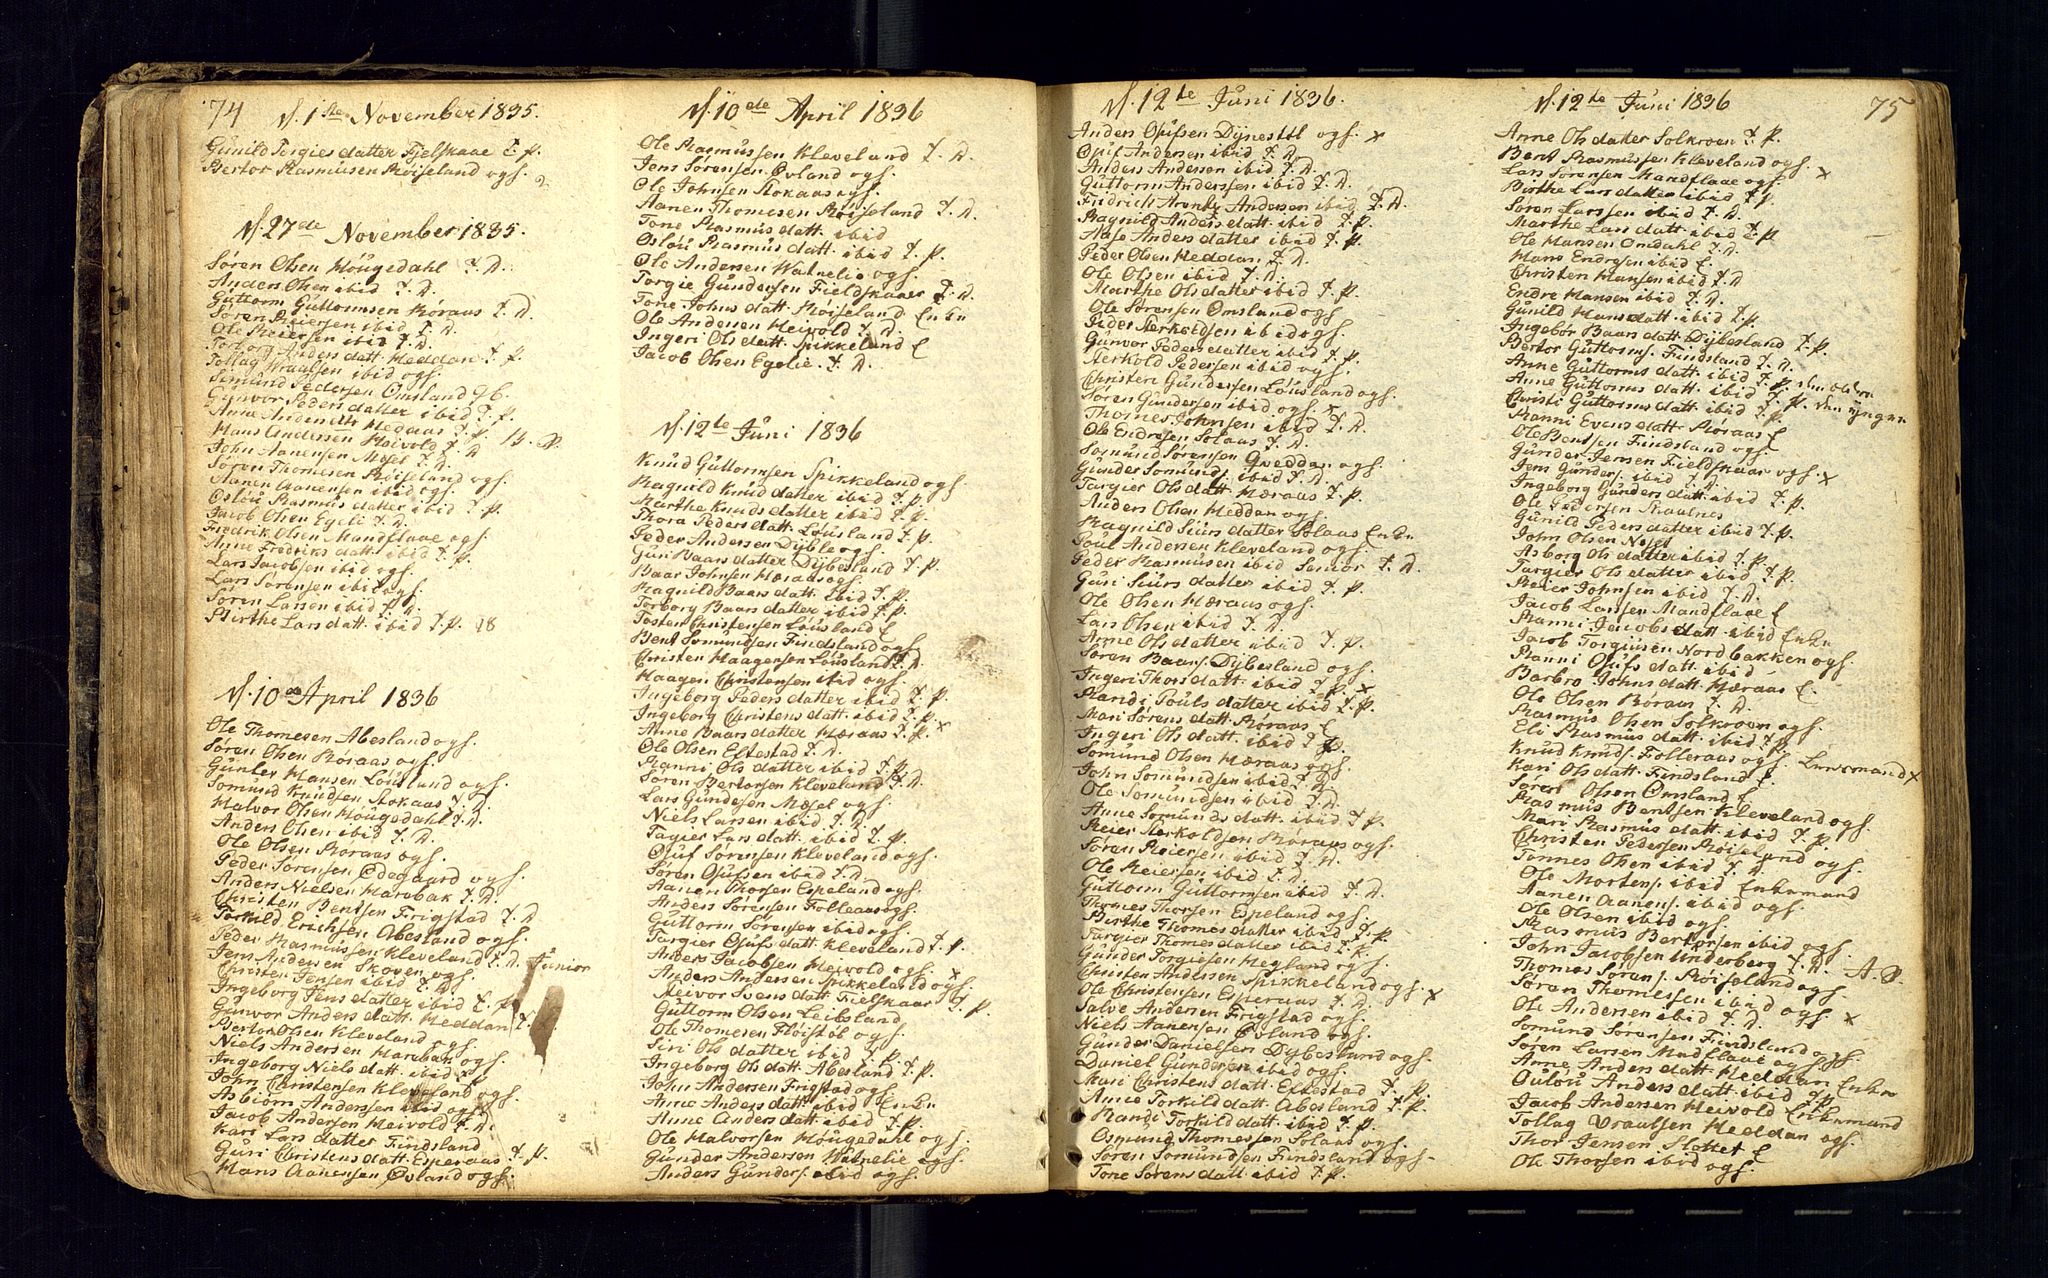 74
d. 1ste November 1835.
Gunild Torgiesdatter Fjelskaae T. P.
Bertor Rasmusen Røiseland ogs.
d. 27de November 1835.
Søren Olsen Hougedahl T. D.
Anders Olsen ibid T. D.
Guttorm Guttormsen Røraas T. D.
Søren Reiersen ibid T. D.
Ole Reiersen ibid T. D.
Torborg Anders datt Heddan T. P.
Tollag Wraalsen ibid ogs.
Semund Pedersen Omsland
Gunvor Peders datter ibid T. P.
Anne Andersdtr Hedaas T. P.
Hans Andersen Heivold T. D
John Aanensen Mosel T. D.
Søren Thomesen Røiseland ogs.
Aanen Aanensen ibid ogs.
Oslou Rasmus datter ibid T. P.
Jacob Olsen Egeli T. D.
Fredrik Olsen Mandflaae ogs.
Anne Fredriks datt ibid T. P.
Lars Jacobsen ibid ogs.
Lars Sørensen ibid ogs.
Søren Larsen ibid T. D.
Birthe Lars datt ibid T. P. 28
d. 10de April 1836
Ole Thomesen Abesland ogs.
Søren Olsen Røraas ogs.
Gunder Hansen Lousland ogs.
Somund Knudsen Stokaas T. D.
Halvor Olsen Hougedahl T. D.
Anders Olsen ibid T. D.
Ole Olsen Røraas ogs.
Peder Sørensen Ødegaard ogs.
Anders Nielsen Harebak T. D.
Christen Bentsen Frigstad T. D
Torkild Erichsen Abesland ogs.
Peder Rasmussen Kleveland T. D. Junior
Jens Andersen Skoven ogs.
Christen Jensen ibid T. D
Ingeborg Jens datter ibid T. P
Gunvor Anders datt. Heddan T.
Bertor Olsen Kleveland ogs.
Niels Andersen Harebak ogs.
Ingeborg Niels datt. ibid T. P
John Christensen Kleveland ogs.
Asbiørn Anderssen ibid ogs
Jacob Andersen Heivold T. D.
Kari Lars datter Findsland
Guri Christens datt. Esperaas T. P.
Hans Aanensen Øvland ogs.
d. 10de April 1836
Ole Rasmussen Kleveland T. D.
Jens Sørensen Øvland ogs.
Ole Johnsen Stokaas ogs.
Aanen Thomesen Røiseland T. D.
Tone Rasmus datt ibid
Oslou Rasmus datt. ibid T. P.
Ole Andersen Watnelie ogs.
Torgie Gundersen Fieldskaaer T. D.
Tone Johns datt. Røiseland Enke
Ole Andersen Heivold T. D.
Ingeri Ols datt. Spikkeland E
Jacob Olsen Egelie. T. D.
d. 12te Juni 1836
Knud Guttormsen Spikkeland ogs
Ragnild Knud datter ibid T. P.
Marthe Knuds datter ibid T. P.
Thora Peders datt. Lousland T. P.
Peder Andersen Dyble ogs.
Guri Baars datter Dybesland T. P.
Baar Johnsen Hæraas ogs.
Ragnild Baars datt. ibid T. P.
Torborg Baars datter ibid T. P.
Tosten Christensen Lousland E
Bent Somundsen Findsland ogs
Christen Haagensen Lousland T. D.
Haagen Christensen ibid ogs.
Ingeborg Peders datter ibid T. P.
Ingeborg Christens datt. ibid T. P.
Anne Baars datter Hæraas T. P. x
Ole Olsen Eftestad T. D.
Ranni Ols datter ibid T. P.
Søren Bertorsen Kleveland T. D.
Lars Gundersen Mosel ogs.
Niels Larsen ibid T. D.
Tagier Lars datt. ibid T. P.
Ojuf Sørensen Kleveland ogs.
Søren Ojufsen ibid T. D.
Aanen Thorsen Espeland ogs.
Anders Sørensen Folleaas ogs.
Guttorm Sørensen ibid ogs.
Targier Ojufs datt. Kleveland T. P.
Anders Jacobsen Heivold ogs. x
Anders Andersen Spikkeland ogs.
Heivor Svens datt. Fielskaar T. P.
Guttorm Olsen Leibsland
Ole Thomesen Fløistøl ogs.
Siri Ols datter ibid T. P.
Ingeborg Ols datt. Abesland T. P.
John Andersen Frigstad ogs.
Anne Anders datt. ibid Enke
Anne Anders datt ibid T. P.
Ole Halvorsen Hougedahl ogs.
Gunder Anderson Watnelie ogs.
Anders Gunders. ibid ogs.
d. 12te Juni 1836.
Anders Ojufsen Dynestøl ogs. x
Ojuf Andersen ibid T. D.
Anders Andersen ibid T. D.
Guttorm Anderssen ibid T. D.
Fridrich Arentz Andersen ibid T. D.
Ragnild Anders datt. ibid T. P.
Aase Anders datter ibid T. P.
Peder Olsen Heddan T. D.
Ole Olsen ibid T. D.
Marthe Ols datter ibid T. P.
Ole Sørensen Omsland ogs
Peder Herkoldsen ibid ogs.
Gunvor Peders datter ibid T. P.
Herkold Pedersen ibid ogs.
Christen Gundersen Lousland ogs.
Søren Gundersen ibid ogs. x
Thomes Johnsen ibid T. D.
Ole Endresen Solaas T. D.
Somund Sørensen Qveddan ogs.
Gunder Somunds. ibid T. D.
Targier Ols datt. Hæraas T. P.
Anders Olsen Heddan ogs.
Ragnild Siurs datter Solaas Enke
Poul Andersen Kleveland ogs.
Peder Rasmusen ibid Senior T. D.
Guri Siurs datter ibid T. P.
Ole Olsen Hæraas ogs.
Lars Olsen ibid T. D
Anne Ols datter ibid T. P.
Søren Baars. Dybesland ogs.
Ingeri Thors datt. ibid T. P. x
Randi Pouls datter ibid T. P.
Mari Sørens datt. Røraas E
Ingeri Ols datt. ibid T. P.
Somund Olsen Hæraas ogs
John Somundsen ibid T. D
Ole Somundsen ibid T. D.
Anne Somunds datt. ibid T. P.
Reier Herkoldsen Røraas ogs.
Søren Reiersen ibid T. D.
Ole Reiersen ibid T. D.
Guttorm Guttormsen ibid T. D.
Thomes Thorsen Espeland ogs.
Birthe Thomes datter ibid T. P.
Targier Thomes datter ibid T. P.
Gunder Torgiesen Hegland ogs.
Christen Andersen Spikkeland ogs.
Ole Christensen Esperaas T. D. x
Salve Andersen Frigstad ogs.
Niels Aanensen Øvland ogs.
Gunder Danielsen Dybesland ogs.
Daniel Gundersen ibid ogs.
Mari Christens datt. Eftestad T. P.
Anne Torkild datt. Abesland T. P.
Randi Torkild datt. ibid T. P.
Osmund Thomessen Solaas ogs.
Søren Somundsen Findsland ogs.
Tone Sørens datt ibid T. P.
d. 12te Juni 1836
75
Anne Ols datter Solkroen T. P.
Bent Rasmussen Kleveland ogs.
Lars Sørensen Mandflaae ogs. x
Birthe Lars datter ibid T. P.
Søren Larssen ibid T. D.
Marthe Lars datt ibid T. P
Ole Hansen Omdahl T. D.
Hans Endresen ibid E
Christen Hansen ibid T. D
Endre Hansen ibid T. D.
Gunild Hans datt. ibid T. P.
Ingebor Baars datt. Dybesland T. P.
Bertor Guttorms. Findsland T. D.
Anne Guttorms datt. ibid T. P. den eldre
Anne Guttorms datt. ibid T. P. den yngre
Christi Guttorms datt. ibid T. P.
Ranni Evens datt. Røraas E
Ole Bentsen Findsland ogs.
Gunder Jensen Fieldskaar ogs. x
Jens Gunders. ibid T. D.
Ingeborg Gunders datt. ibid
Ole Pedersen Raalnes
Gunild Peders datter ibid T. P.
John Olsen Nosel
Asborg Ols datter ibid T. P.
Targier Ols datter ibid T. P.
Reier Johnsen ibid T. D.
Jacob Larsen Mandflaae E
Ranni Jacobs datt. ibid Enke
Jacob Torgiusen Nordbakken ogs.
Ranni Ojufs datt. ibid
Barbro Johns datt. Hæraas E.
Ole Olsen Røraas T. D.
Rasmus Olsen Solkroen ogs.
Eli Rasmus datt. ibid T. P.
Knud Knuds. Folleraas ogs. x
Kari Ols datt. Findsland E.
Søren Olsen Omsland E
Rasmus Bentsen Kleveland ogs.
Mari Rasmus datt. ibid T. P.
Christen Pedersen Røiseland ogs.
Tønnes Olsen ibid T. D.
Ole Mortens. ibid Enkemand
Aanen Aanens. ibid ogs.
Ole Olsen ibid ogs
Rasmus Bertorsen ibid ogs.
John Jacobsen Underberg T. D.
Thomas Sørens. Røiseland ogs.
Søren Thomessen ibid ogs.
Ole Andersen ibid T. D. x
Somund Sørensen Findsland ogs.
Søren Larsen Madflaae ogs
Anne Anders datt. Heddan Enke
Oulou Anders datt. ibid T. P.
Jacob Andersen Heivold Enkemand
Tollag Vraalsen Heddan ogs.
Thor Jensen Slottet E
Ole Thorsen ibid ogs.